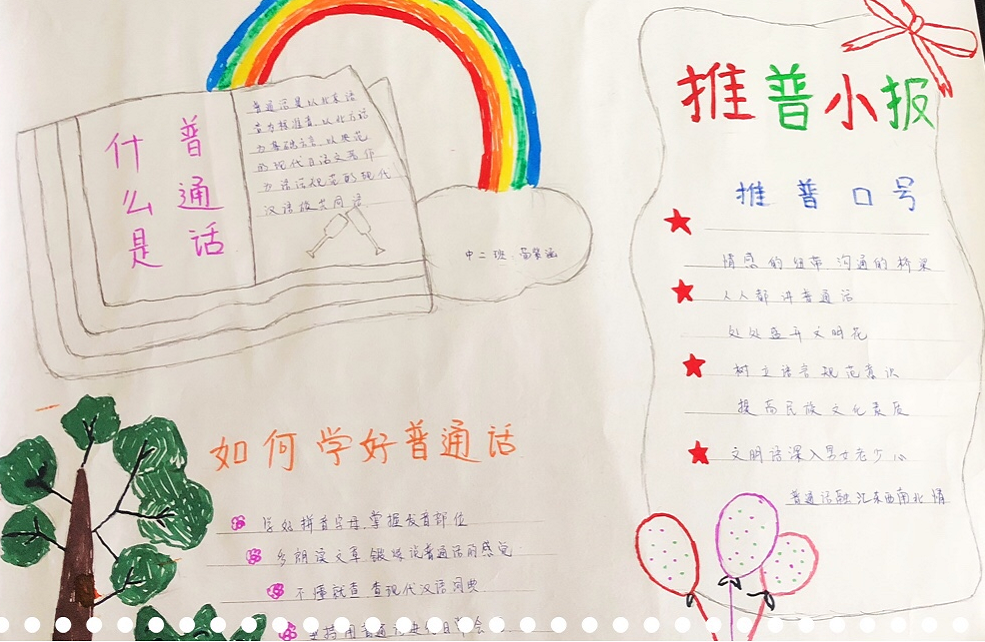 普通话
什么是
普通话是以北京语
音为标准音,以北方话
为基础方言,以典范
的现代白话文著作
为语法规范的现代
汉语族共同语
中二班
推普小报
推普口号
情感的纽带 沟通的桥梁
人人都讲普通话
处处盛开文明花
树立语言规范意识
提高民族文化素质
文明语深入男女老少心
普通话融汇东西南北情
如何学好普通话
学好拼音字母,掌握发音部位
多朗读文章,锻炼说普通话的感觉
不懂就查,查现代汉语词典
坚持用普通话进行日常会